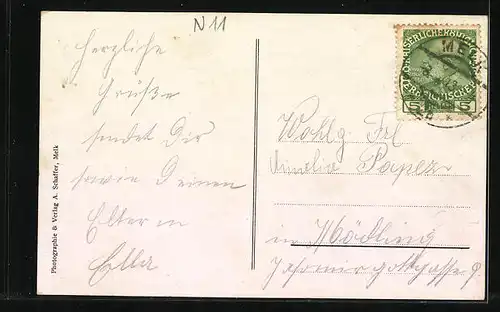 N 11
Herzliche
Grüße
sendet Dir
sowie Deinen
Eltern
Ella
Photographie & Verlag A. Schaffer, Melk
KAISERLICHE KÖNIGLICHE
ÖSTERREICHISCHE
5 5
MELK
Wohlg. Frl
Amelie Papez
in Mödling
Jasomirgottgasse 9.